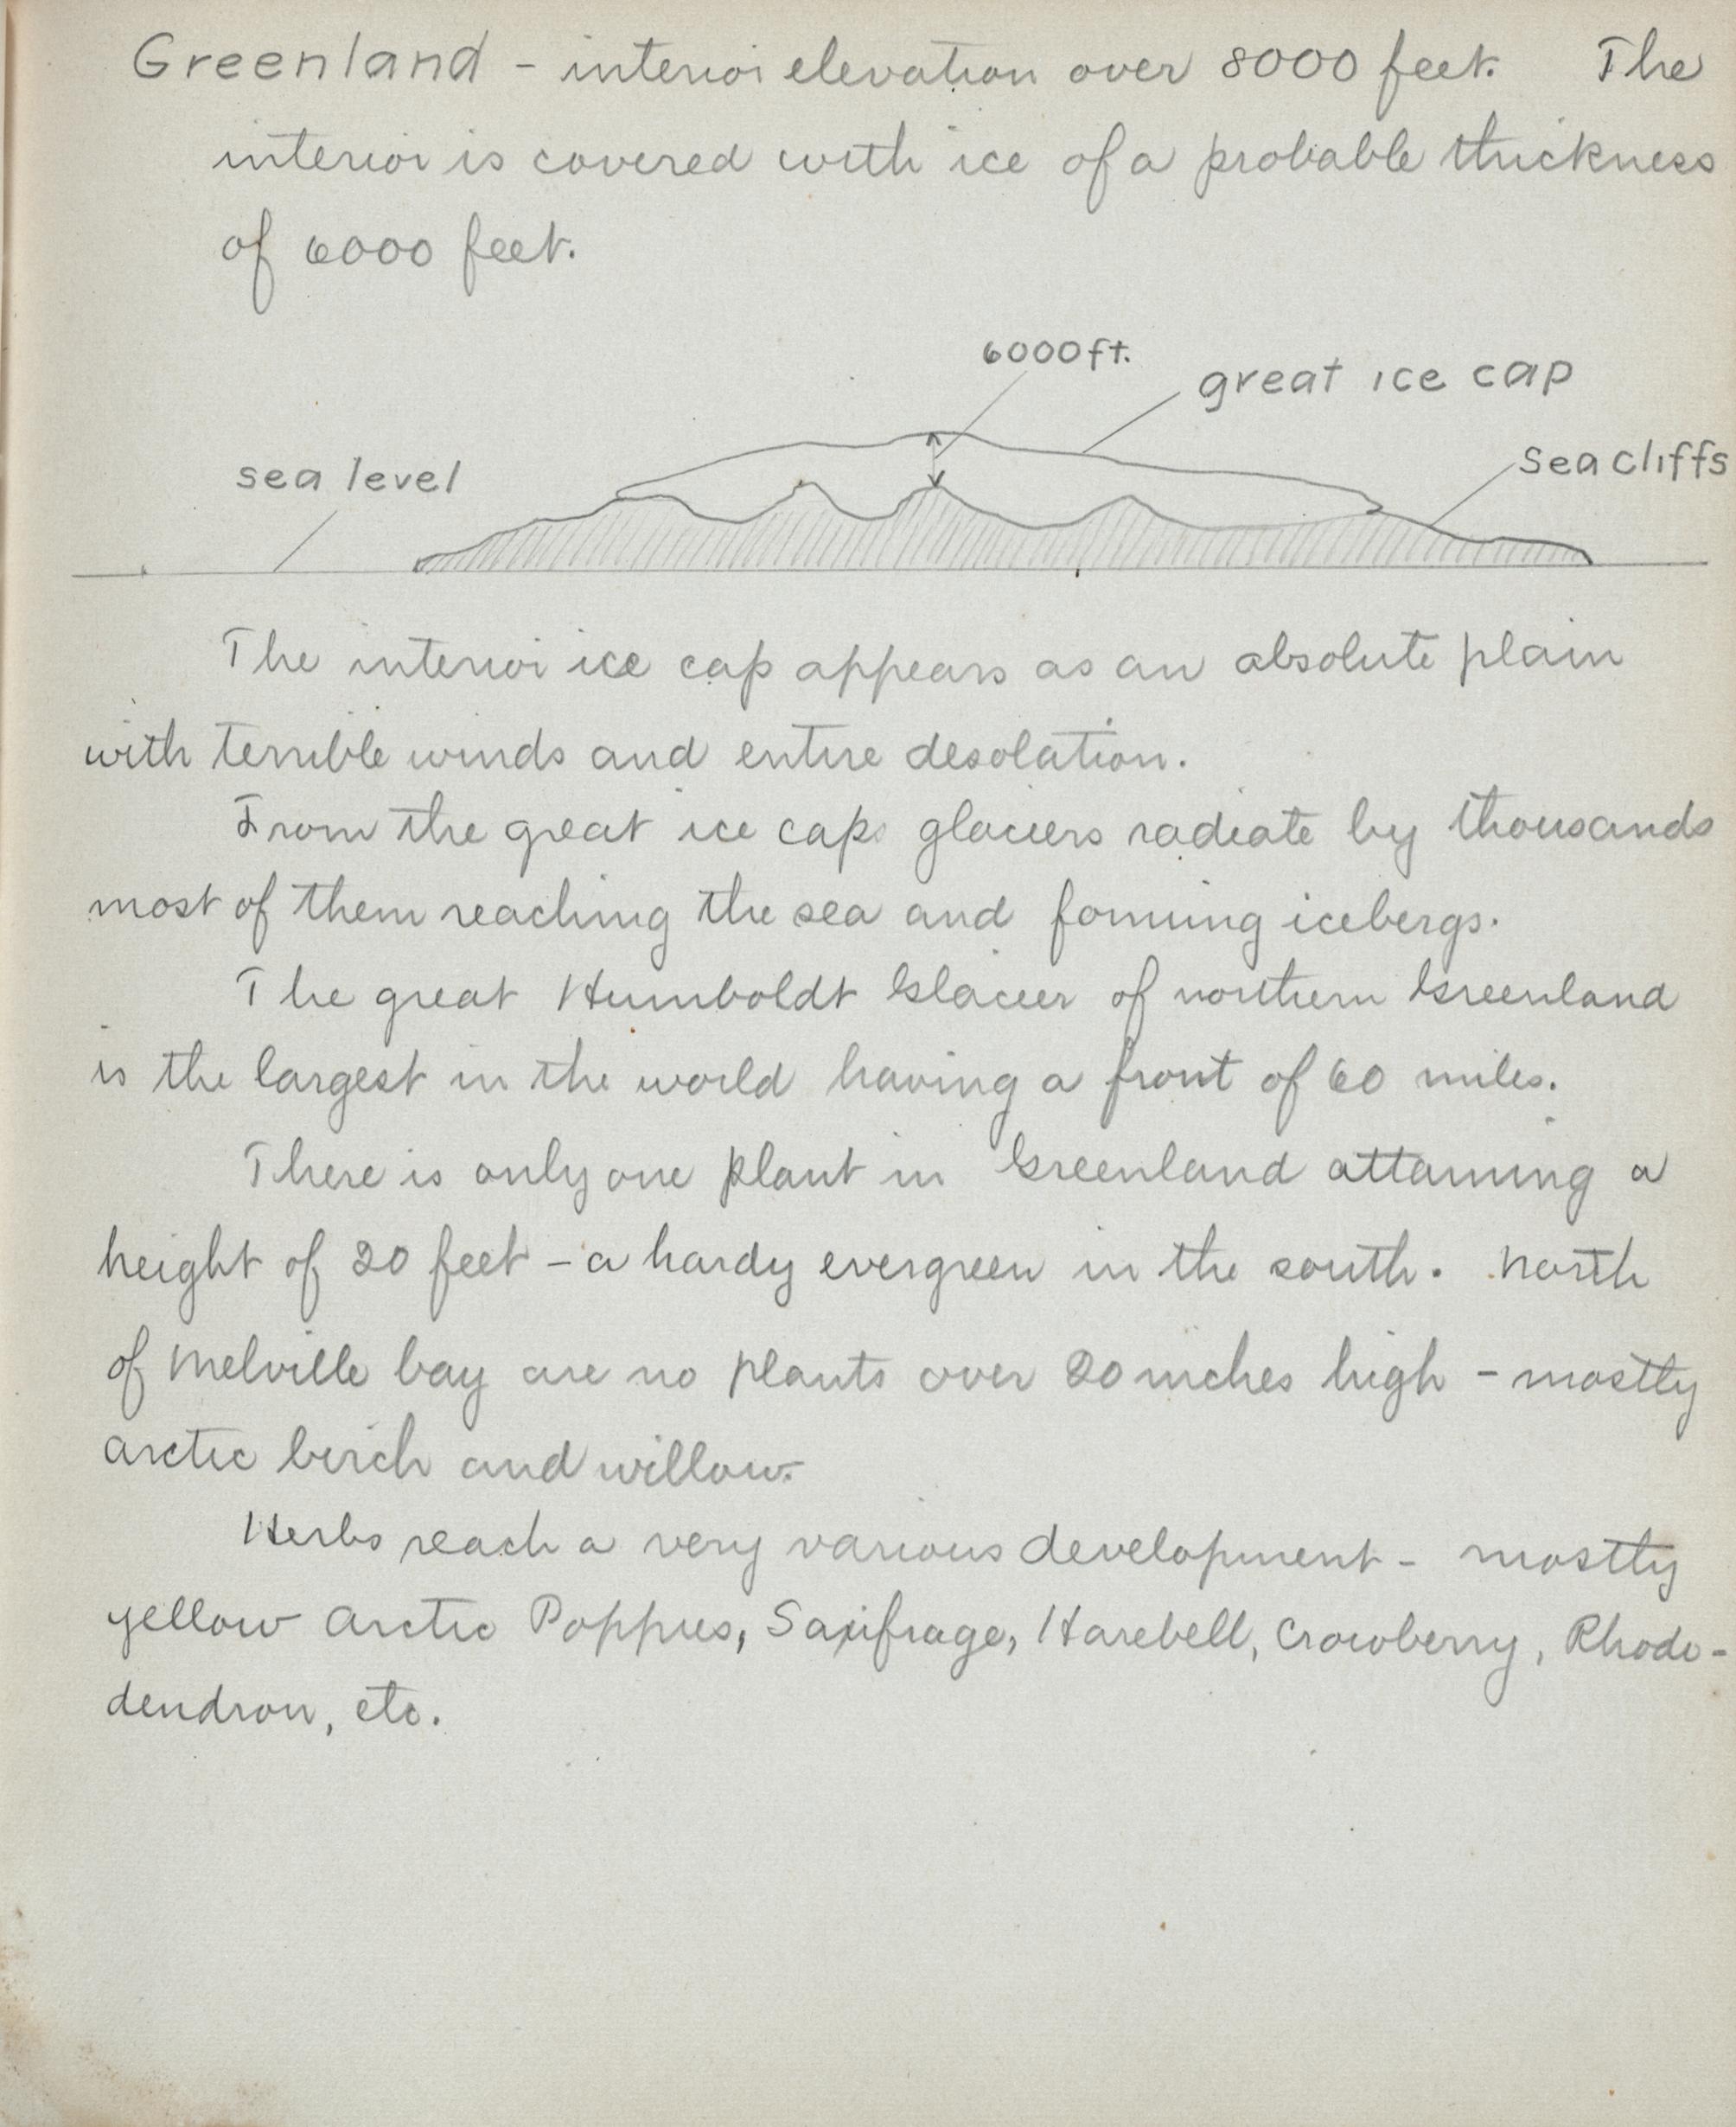 Greenland - interior elevation over 8000 feet. The
interior is covered with ice of a probable thickness
of 6000 feet.
6000 ft.
great ice cap
sea level
Sea cliffs
The interior ice cap appears as an absolute plain
with terrible winds and entire desolation.
From the great ice cap glaciers radiate by thousands
most of them reaching the sea and forming icebergs.
The great Humboldt Glacier of northern Greenland
is the largest in the world having a front of 60 miles.
There is only one plant in Greenland attaining a
height of 20 feet - a hardy evergreen in the south. North
of Melville bay are no plants over 20 inches high - mostly
arctic birch and willow.
Herbs reach a very various development - mostly
yellow Arctic Poppies, Saxifrage, Harebell, Crowberry, Rhodo-
dendron, etc.